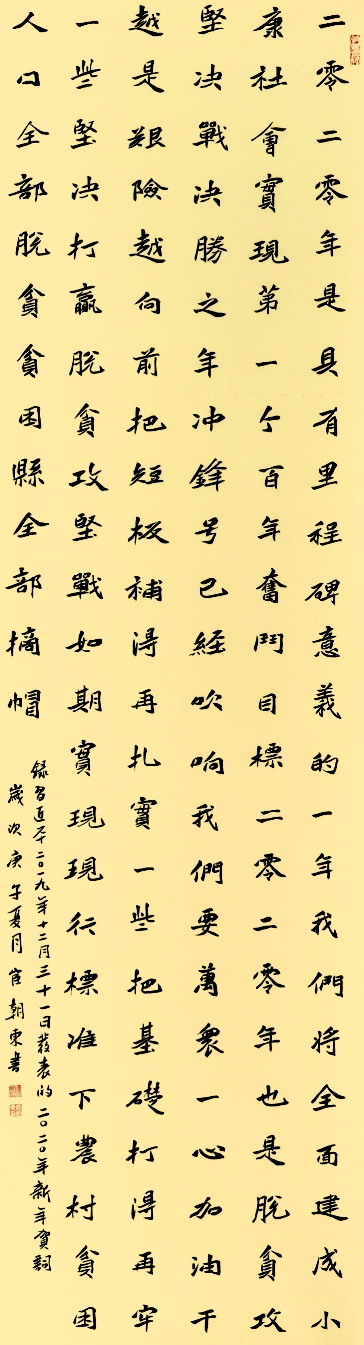 二零二零年是具有里程碑意義的一年我們將全面建成小
康社會實現第一个百年奮鬥目標二零二零年也是脫貧攻
堅决戰决勝之年冲鋒号已經吹响我們要萬衆一心加油干
越是艱險越向前把短板補得再扎實一些把基礎打得再牢
一些堅决打贏脫貧攻堅戰如期實現現行標准下農村貧困
人口全部脫貧貧困縣全部摘帽
錄習近平二〇一九年十二月三十一日發表的二〇二〇年新年賀詞
歲次庚子夏月官朝東書